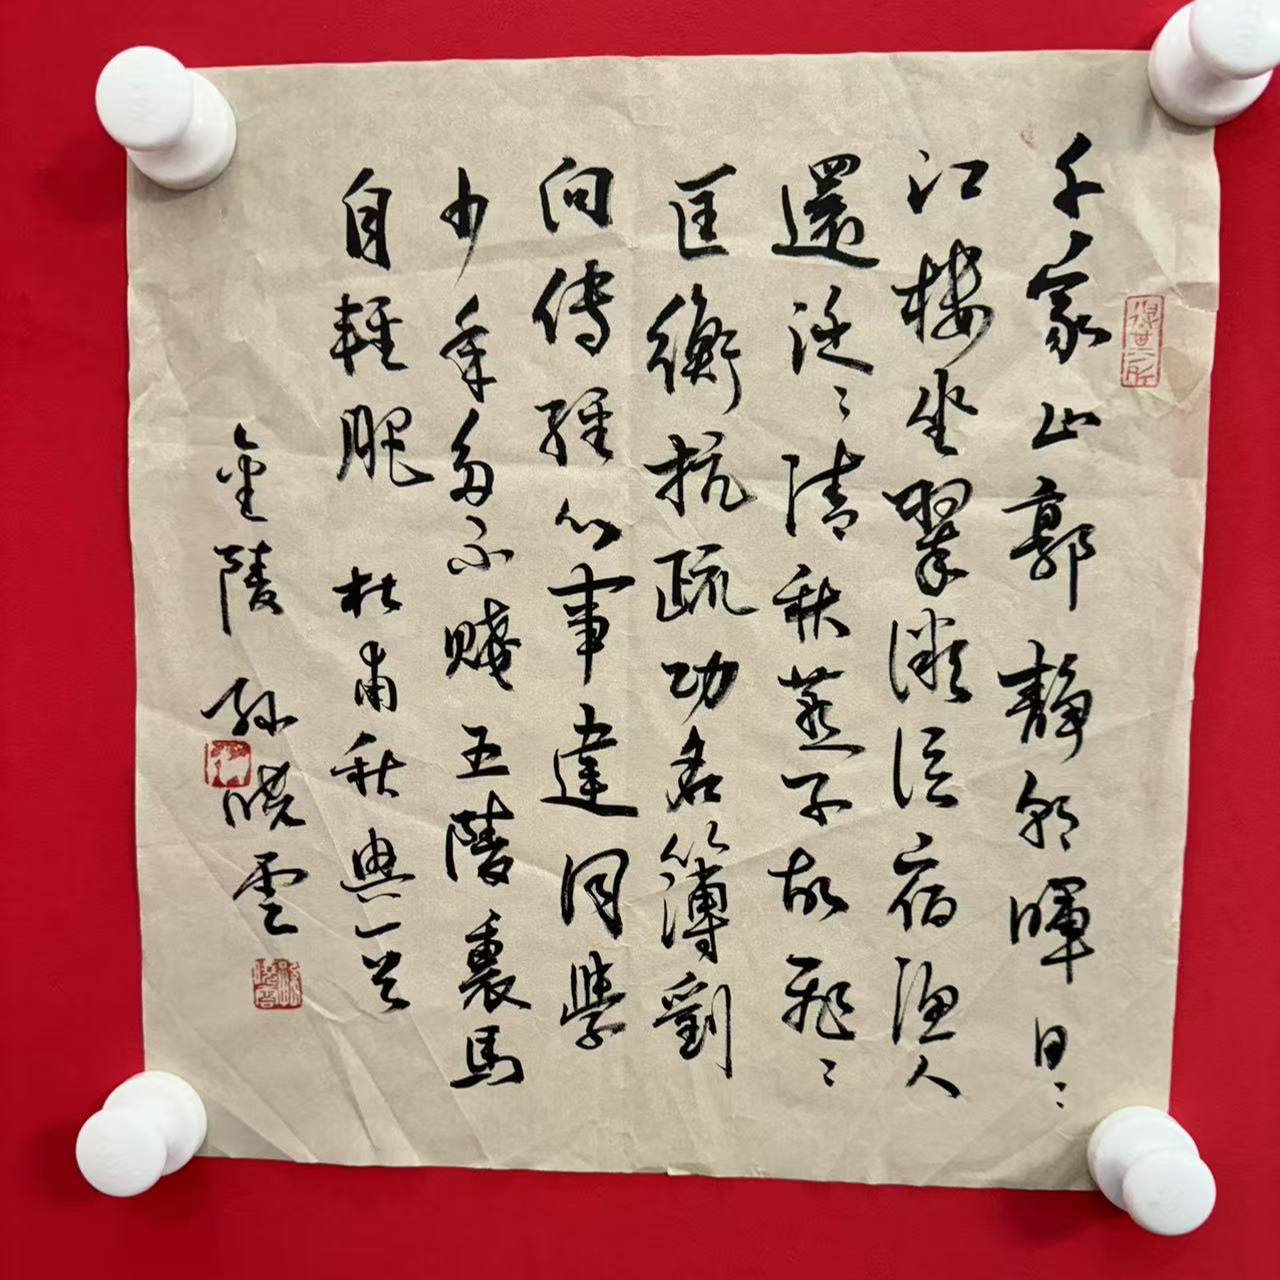 千家山郭靜朝暉日〻
江樓坐翠微信宿漁人
還泛〻清秋燕子故飛〻
匡衡抗疏功名簿劉
向傳經心事違同學
少年多不賤五陵裏馬
自輕肥 杜甫秋興一首
金陵 孫曉雲
得其所